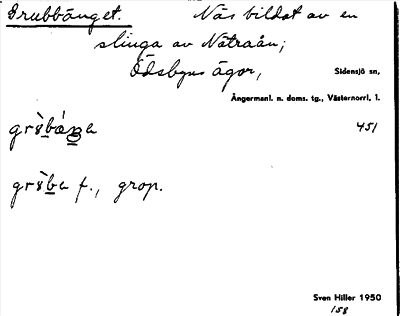 Grubbänget. Näs bildat av en
slinga av Nätraån;
Ödsbyns ägor,
Sidensjö sn,
Ångermanl. n. doms. tg., Västernorrl. l.
451
f., grop.
Sven Hiller 1950
158